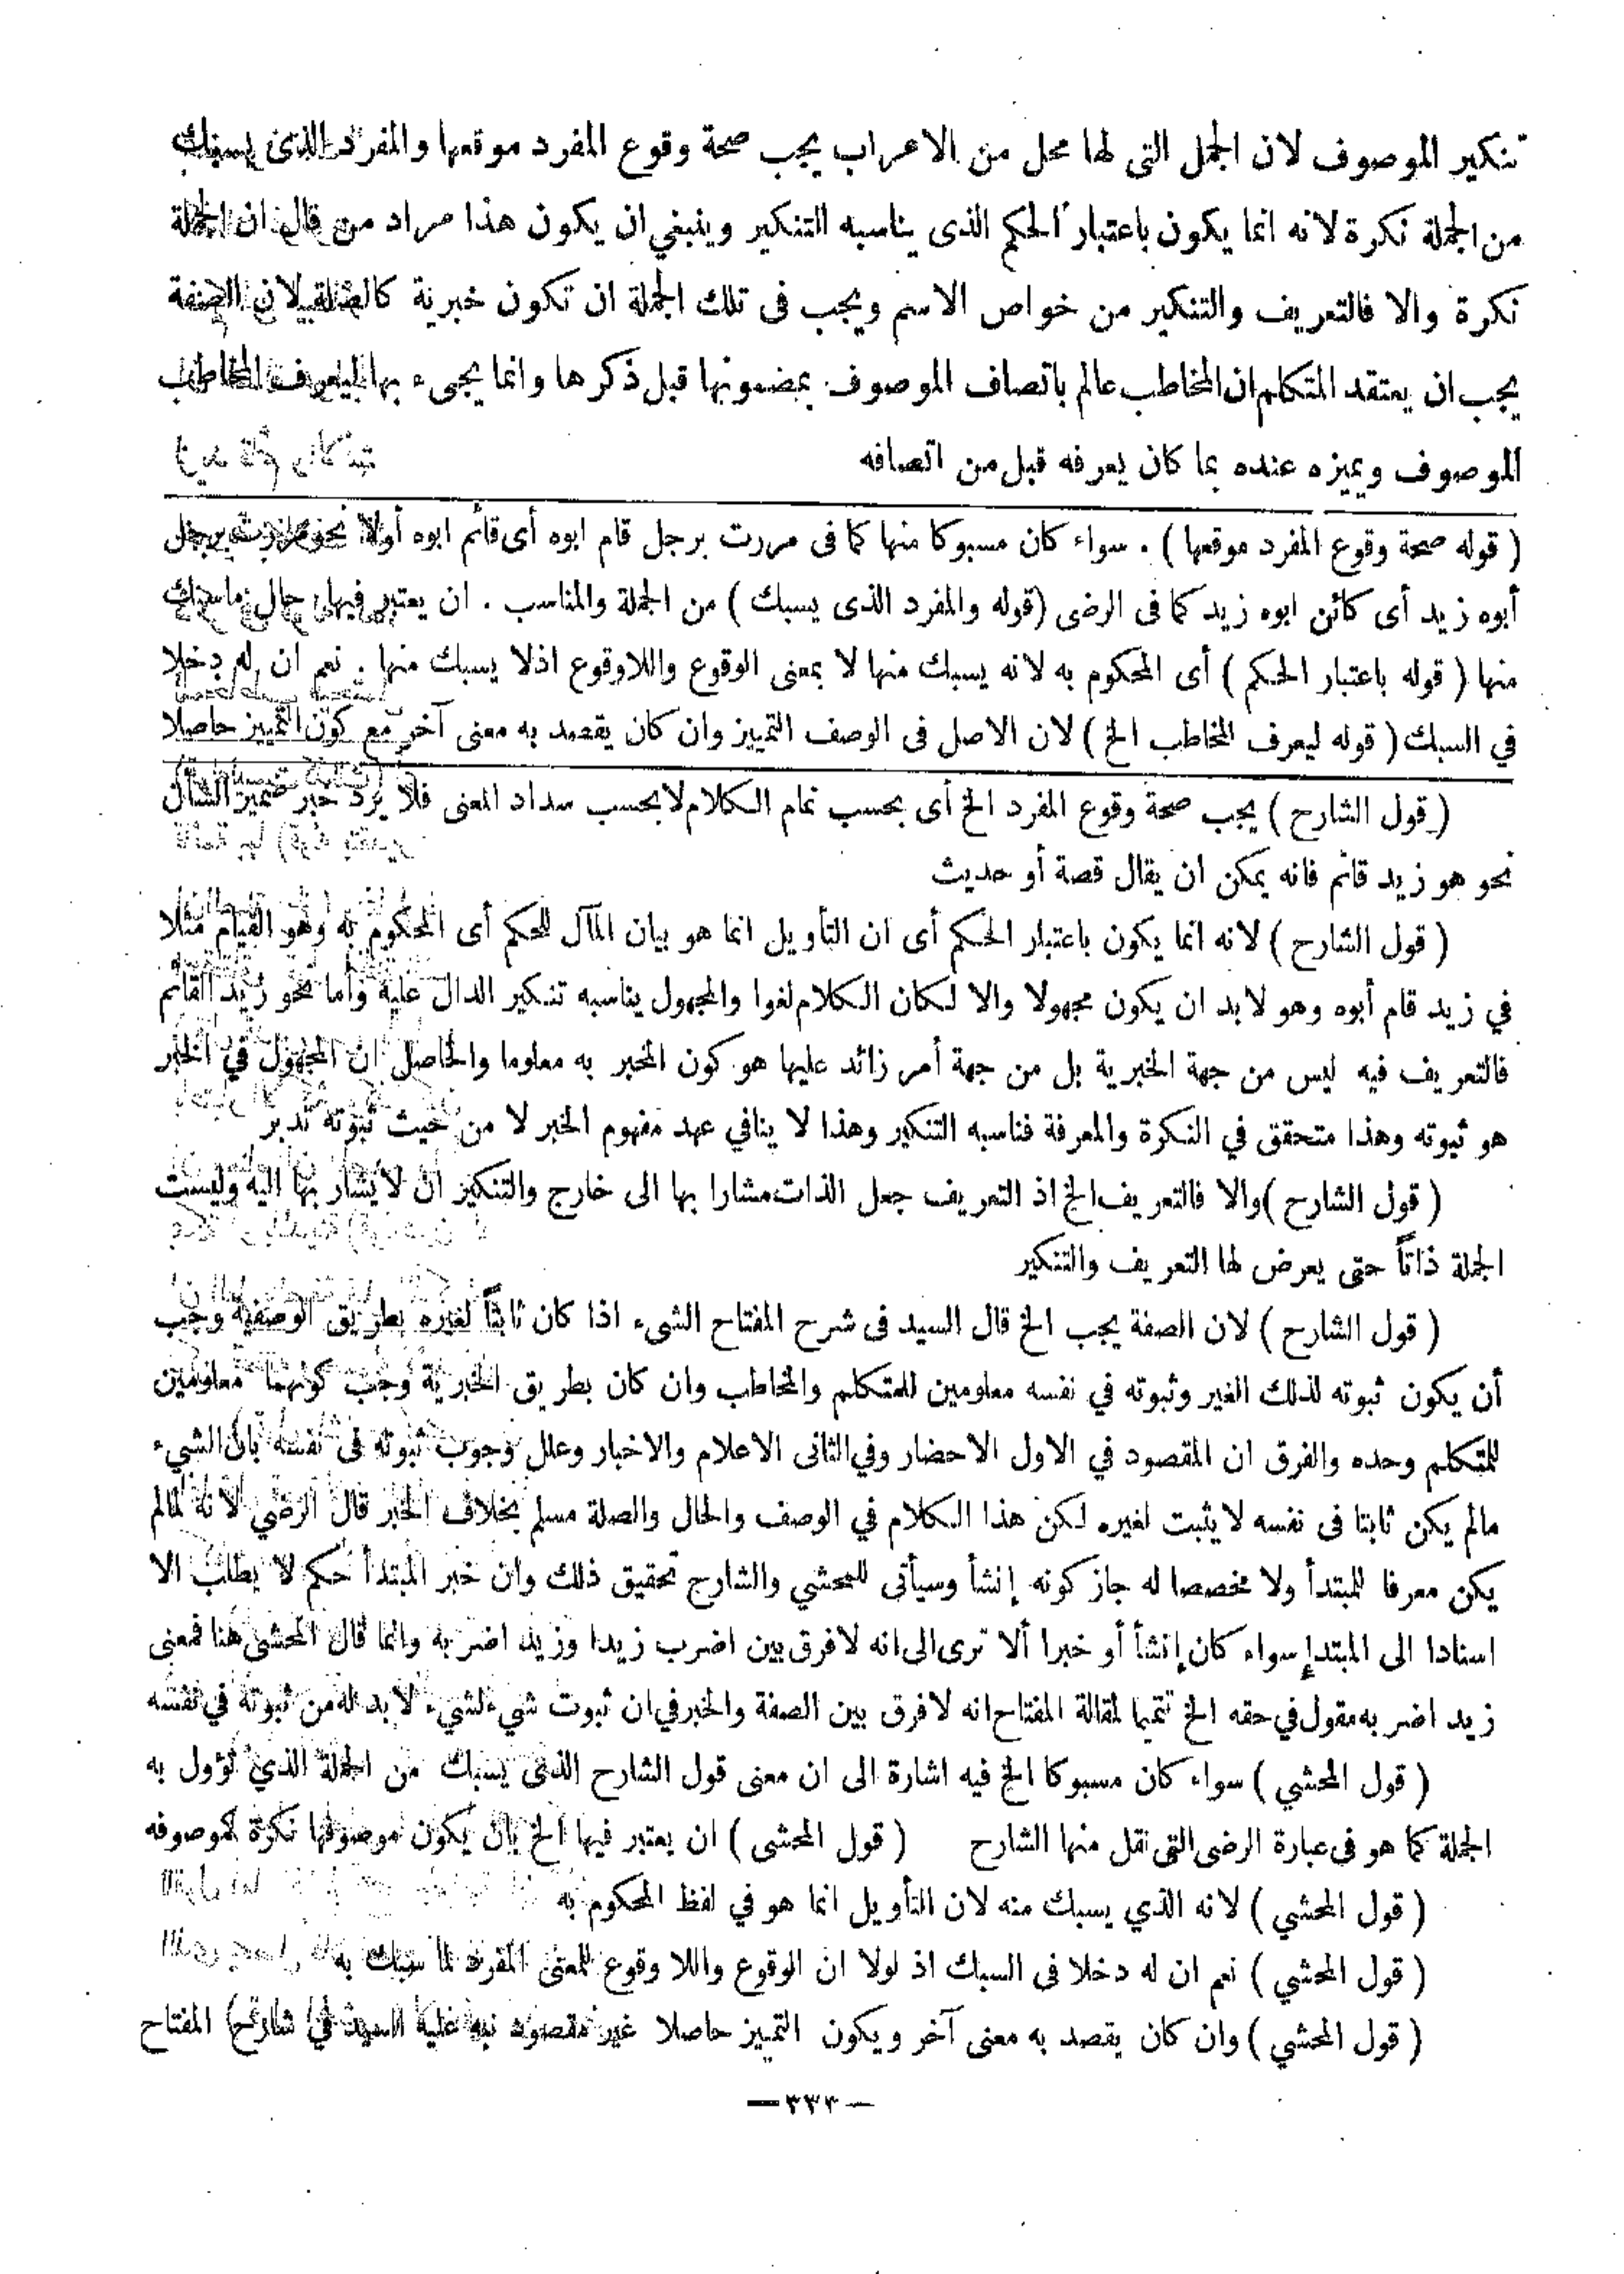 تنكير الموصوف لان الجمل التى لها محل من الاعراب يجب صحة وقوع المفرد موقعها والمفرد الذى يسبك
من الجملة نكرة لانه انما يكون باعتبار الحكم الذى يناسبه التنكير وينبغي ان يكون هذا مراد من قال ان الجملة
نكرة والا فالتعريف والتنكير من خواص الاسم ويجب فى تلك الجملة ان تكون خبرية كالصلة لان الصفة
يجب ان يعتقد المتكلم ان المخاطب عالم باتصاف الموصوف بمضمونها قبل ذكرها وانما يجىء بها ليعرف المخاطب
الموصوف ويميزه عنده بما كان يعرفه قبل من اتصافه
( قوله صحة وقوع المفرد موقعها ) . سواء كان مسبوكا منها كما فى مررت برجل قام ابوه أى قائم ابوه أولا نحو مررت برجل
أبوه زيد أى كائن ابوه زيد كما فى الرضى (قوله والمفرد الذى يسبك ) من الجملة والمناسب . ان يعتبر فيها حال ما سبك
منها ( قوله باعتبار الحكم ) أى المحكوم به لانه يسبك منها لا بمعنى الوقوع واللاوقوع اذلا يسبك منها . نعم ان له دخلا
في السبك ( قوله ليعرف المخاطب الخ ) لان الاصل فى الوصف التمييز وان كان يقصد به معنى آخر مع كون التمييز حاصلا
( قول الشارح ) يجب صحة وقوع المفرد الخ أى بحسب تمام الكلام لا بحسب سداد المعنى فلا يرد خبر ضمير الشأن
نحو هو زيد قائم فانه يمكن ان يقال قصة أو حديث
( قول الشارح ) لانه انما يكون باعتبار الحكم أى ان التأويل انما هو بيان المآل للحكم أى المحكوم به وهو القيام مثلا
في زيد قام أبوه وهو لابد ان يكون مجهولا والا لكان الكلام لغوا والمجهول يناسبه تنكير الدال عليه وأما نحو زيد القائم
فالتعريف فيه ليس من جهة الخبرية بل من جهة أمر زائد عليها هو كون المخبر به معلوما والحاصل ان المجهول في الخبر
هو ثبوته وهذا متحقق في النكرة والمعرفة فناسبه التنكير وهذا لا ينافي عهد مفهوم الخبر لا من حيث ثبوته تدبر
( قول الشارح )والا فالتعريف الخ اذ التعريف جعل الذات مشارا بها الى خارج والتنكير ان لا يشار بها اليه وليست
الجملة ذاتاً حتى يعرض لها التعريف والتنكير
( قول الشارح ) لان الصفة يجب الخ قال السيد فى شرح المفتاح الشىء اذا كان ثابتاً لغيره بطريق الوصفية وجب
أن يكون ثبوته لذلك الغير وثبوته في نفسه معلومين للمتكلم والمخاطب وان كان بطريق الخبرية وجب كونهما معلومين
للمتكلم وحده والفرق ان المقصود في الاول الاحضار وفي الثانى الاعلام والاخبار وعلل وجوب ثبوته فى نفسه بان الشيء
مالم يكن ثابتا فى نفسه لا يثبت لغيره لكن هذا الكلام في الوصف والحال والصلة مسلم بخلاف الخبر قال الرضي لانه لمالم
يكن معرفا للمبتدأ ولا مخصصا له جاز كونه إنشأ وسيأتى للمحشي والشارح تحقيق ذلك وان خبر المبتدأ حكم لا يطلب الا
اسنادا الى المبتدإ سواء كان إنشأ أو خبرا ألا ترى الى انه لا فرق بين اضرب زيدا وزيد اضربه وانما قال المحشى هنا فمعنى
زيد اضربه مقول في حقه الخ تتميما لمقالة المفتاح انه لا فرق بين الصفة والخبر في ان ثبوت شيء لشيء لا بد له من ثبوته في نفسه
( قول المحشي ) سواء كان مسبوكا الخ فيه اشارة الى ان معنى قول الشارح الذى يسبك من الجملة الذي تؤول به
الجملة كما هو فى عبارة الرضى التى نقل منها الشارح ( قول المحشى ) ان يعتبر فيها الخ بان يكون موصوفها نكرة كموصوفه
( قول المحشي ) لانه الذي يسبك منه لان التأويل انما هو في لفظ المحكوم به
( قول المحشي ) نعم ان له دخلا فى السبك اذ لولا ان الوقوع واللا وقوع للمعنى المفرد لما سبك به
( قول المحشي ) وان كان يقصد به معنى آخر ويكون التمييز حاصلا غير مقصود نبه عليه السيد في شارح المفتاح
— ٣٣٣ —